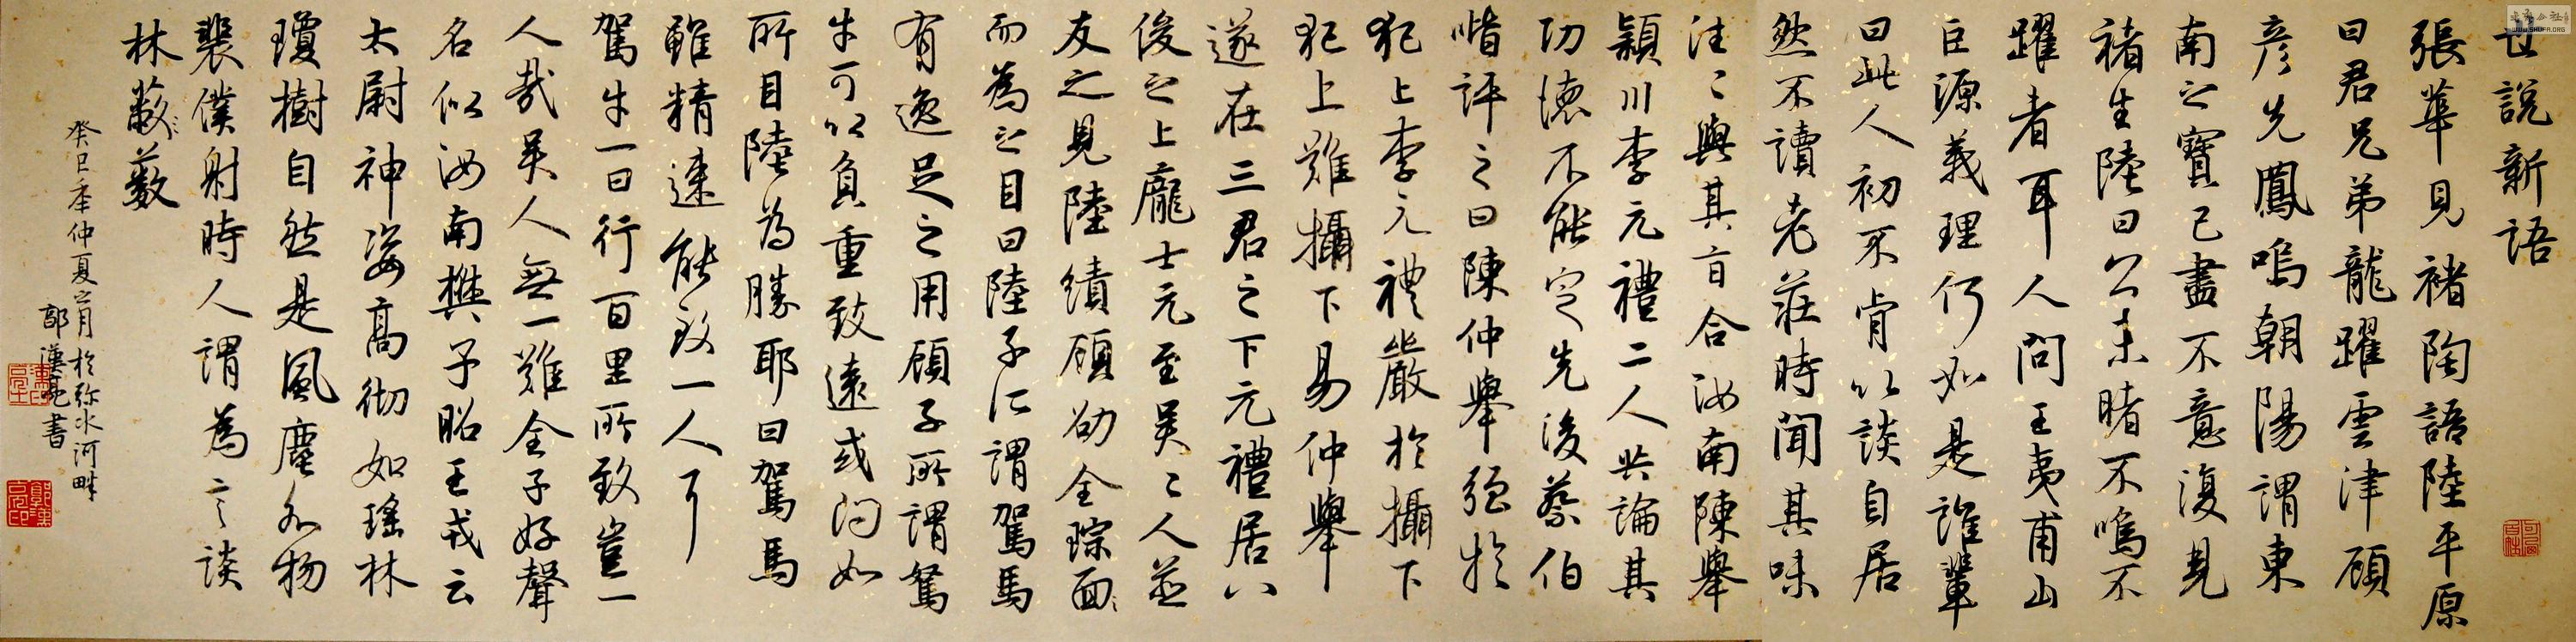 世說新語
張華見褚陶語陸平原
曰君兄弟龍躍雲津顧
彥先鳳鳴朝陽謂東
南之寶已盡不意復見
褚生陸曰公未睹不鳴不
躍者耳人問王夷甫山
巨源義理何如是誰輩
曰此人初不肯以談自居
然不讀老莊時聞其味
往〻與其旨合汝南陳舉
潁川李元禮二人共論其
功德不能定先後蔡伯
喈評之曰陳仲舉強於
犯上李元禮嚴於攝下
犯上難攝下易仲舉
遂在三君之下元禮居八
俊之上龐士元至吳〻人並
友之見陸績顧劭全琮面
而為之目曰陸子所謂駑馬
有逸足之用顧子所謂駑
牛可以負重致遠或問如
所目陸為勝耶曰駑馬
雖精速能致一人耳
駑牛一日行百里所致豈一
人哉吳人無一難全子好聲
名似汝南樊子昭王戎云
太尉神姿高徹如瑤林
瓊樹自然是風塵外物
裴僕射時人謂為言談
林藪藪
癸巳年仲夏之月於弥水河畔
郭漢亮書
WWW.SHUFA.ORG